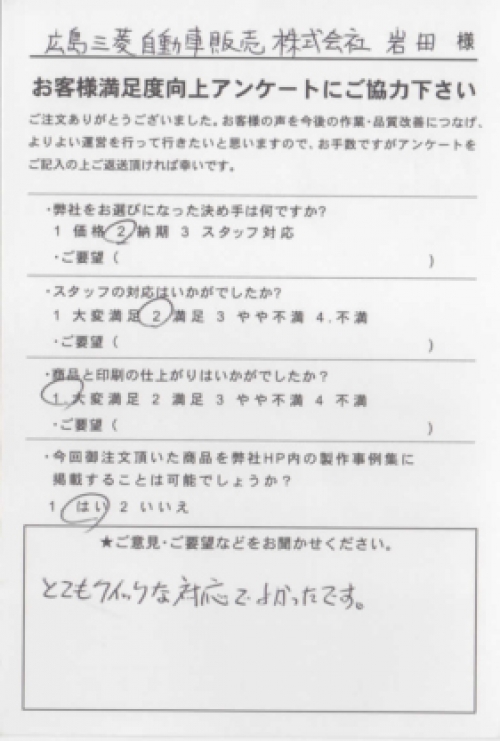 広島三菱自動車販売 株式会社 岩田 様
お客様満足度向上アンケートにご協力下さい
ご注文ありがとうございました。お客様の声を今後の作業・品質改善につなげ、
よりよい運営を行って行きたいと思いますので、お手数ですがアンケートを
ご記入の上ご返送頂ければ幸いです。
・弊社をお選びになった決め手は何ですか?
1 価格 2 納期 3 スタッフ対応
・ご要望 ( )
・スタッフの対応はいかがでしたか?
1 大変満足 2 満足 3 やや不満 4.不満
・ご要望 ( )
・商品と印刷の仕上がりはいかがでしたか?
1 大変満足 2 満足 3 やや不満 4 不満
・ご要望 ( )
・今回御注文頂いた商品を弊社HP内の製作事例集に
掲載することは可能でしょうか?
1 はい 2 いいえ
★ご意見・ご要望などをお聞かせください。
とてもクイックな対応でよかったです。